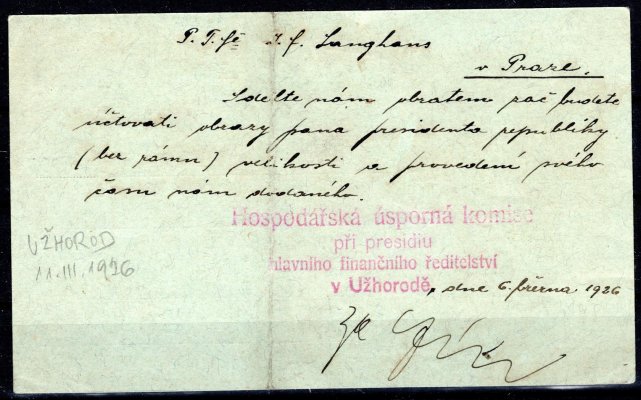 P. T. fě J. F. Langhans
v Praze.
Sdělte nám obratem zač budete
účtovati obrazy pana presidenta republiky
(bez rámu) velikosti a provedení svého
času nám dodaného.
Hospodářská úsporná komise
při presidiu
hlavního finančního ředitelství
v Užhorodě, dne 6. března 1926
UŽHOROD
11.III.1926
Za